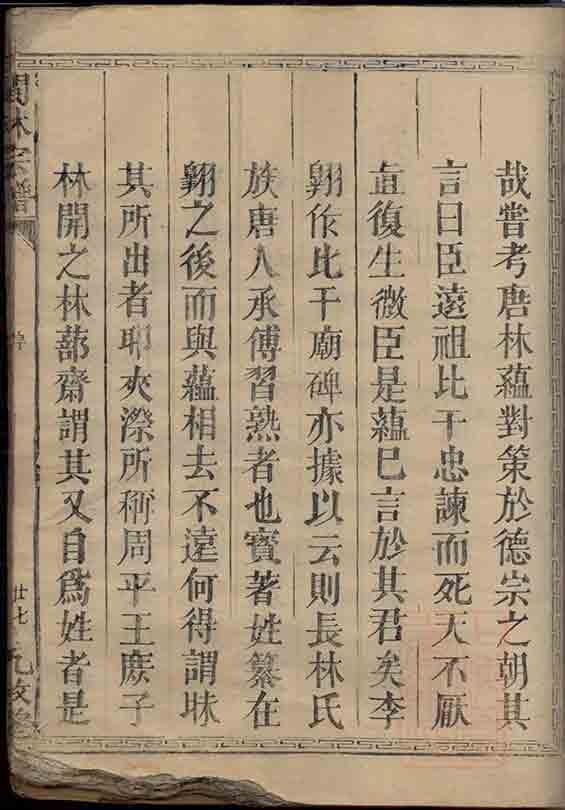 哉嘗考唐林蘊對策於德宗之朝其
言曰臣遠祖比干忠諫而死天不厭
直復生微臣是蘊已言於其君矣李
翱作比干廟碑亦據以云則長林氏
族唐人承傅習熟者也寳著姓纂在
翱之後而與蘊相去不遠何得謂昧
其所出者耶夾漈所稱周平王庶子
林開之林蔀齋謂其又自為姓者是
林宗譜
廿七